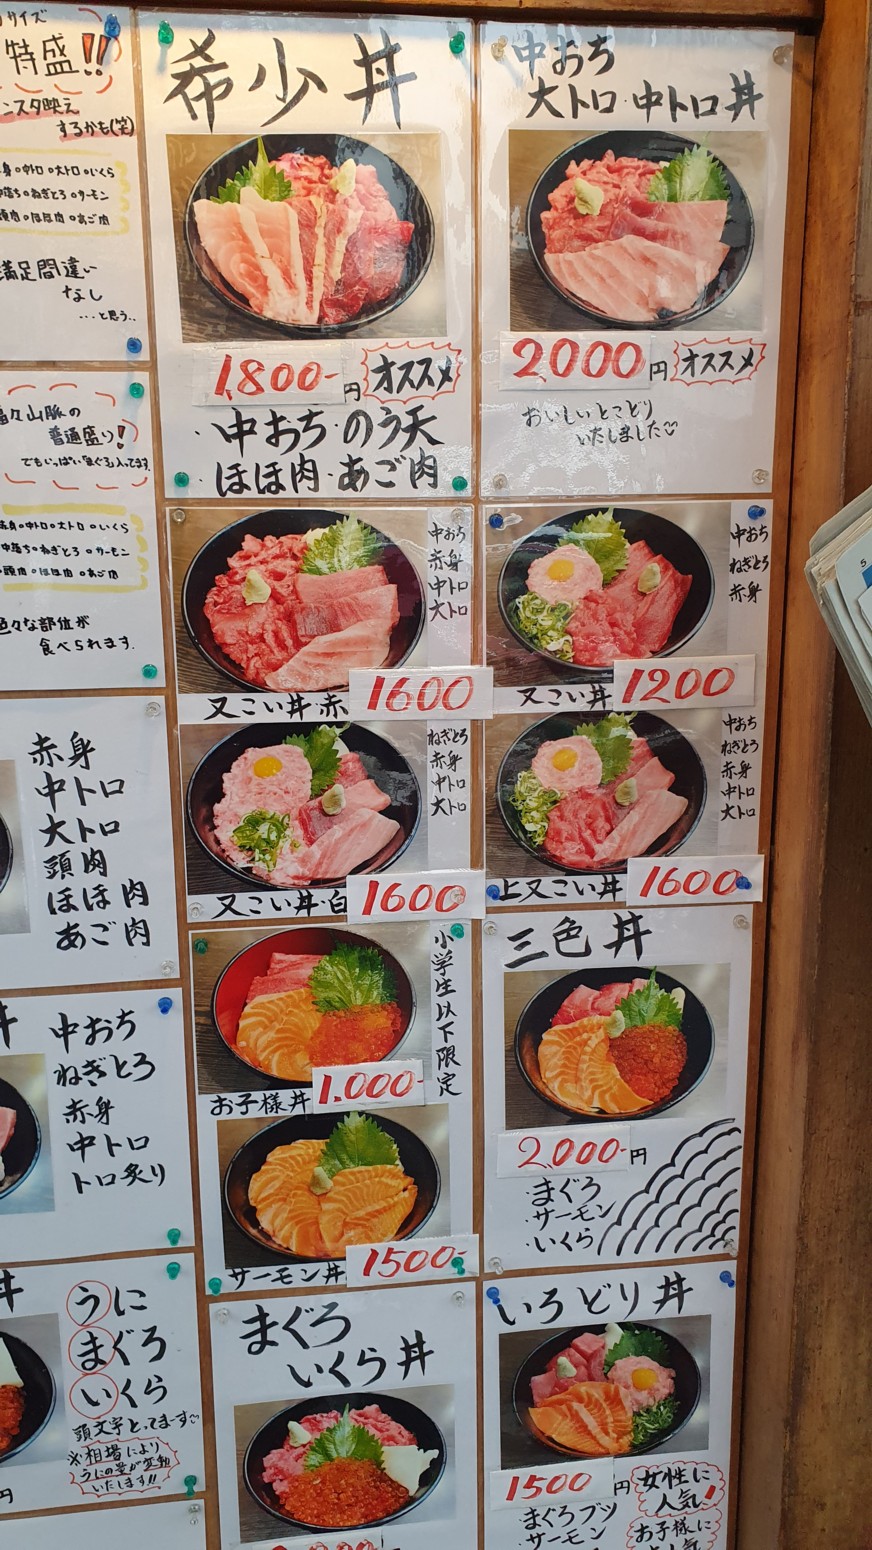 サイズ
特盛!!
ンスタ映え
するかも(笑)
身○中トロ○大トロ○いくら
中落ち○ねぎとろ○サーモン
頭肉○ほほ肉○あご肉
満足間違い
なし
…と思う..
希少丼
1,800-円
オススメ
・中おち・のう天
ほほ肉・あご肉
中おち
大トロ・中トロ丼
2000円
オススメ
おいしいとこどり
いたしました
山脈の
普通盛り!
でもいっぱい「まぐろ」入ってます。
赤身○中トロ○大トロ○いくら
中落ち○ねぎとろ○サーモン
頭肉○ほほ肉○あご肉
色々な部位が
食べられます。
中おち
赤身
中トロ
大トロ
又こい丼・赤
1600
中おち
ねぎとろ
赤身
又こい丼
1200
ねぎとろ
赤身
中トロ
大トロ
又こい丼・白
1600
中おち
ねぎとろ
赤身
中トロ
大トロ
上又こい丼
1600
赤身
中トロ
大トロ
頭肉
ほほ肉
あご肉
小学生以下限定
お子様丼
1,000-
サーモン丼
1500-
三色丼
2,000-円
・まぐろ
・サーモン
・いくら
丼
中おち
ねぎとろ
赤身
中トロ
トロ炙り
丼
うに
まぐろ
いくら
頭文字とってま〜す
※相場により
うにの量が変動
いたします!!
円
まぐろ
いくら丼
いろどり丼
1500円
・まぐろブツ
・サーモン
女性に
人気!
お子様に